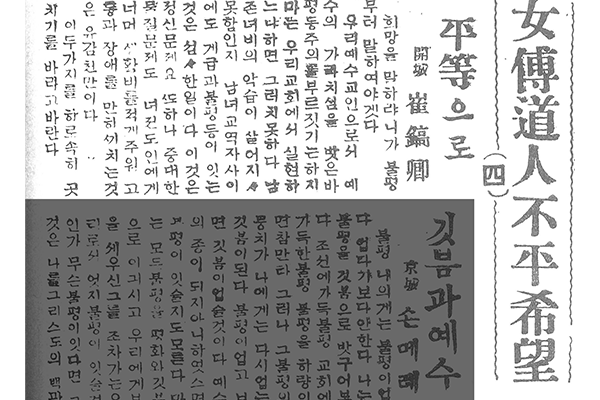 女傳道人不平希望
(四)
平等으로
開城 崔鎬卿
희망을 말하랴니가 불평
부터 말하여야겟다
우리예수교인으로서 예
수의 가라치심을 밧은바
평등주의를부르짓기는하지
마는 우리교회에서 실현하
느냐하면 그러치못하다 남
존녀비의 악습이 살어지지
못함인지 남녀교역자사이
에도 계급과불평등이 잇는
것은 한일이다 이것은
정신문제요 또하나 중대한
물질문제도 녀전도인에게
너머 생활비를적게주워 고
통과 장애를 만히끼치는것
은 유감천만이다
이두가지를 하로속히 곳
치기를 바라고바란다
깃븜과예수
京城 손메레
불평 내의게는 불평이업
다 업다기보다안한다 나는
불평을 깃븜으로 밧구어보
다 조선에가득불평 교회에
가득한불평 불평을 하량이
면참만타 그러나 그불평의
뭉치가 나에게는 다시업는
깃븜이된다 불평이업고 보
면 깃븜이업슬것이다 예수
의 종이 되지아니하엿스면
불평이 잇슬지도모른다 마
는 모든불평을 평화와깃븜
으로 이기시고 우리에게본
을 세우신그를 조차가는우
리로서 엇지불평이 잇슬것
인가 무슨불평이잇다면 그
것은 나를그리스도의 백판